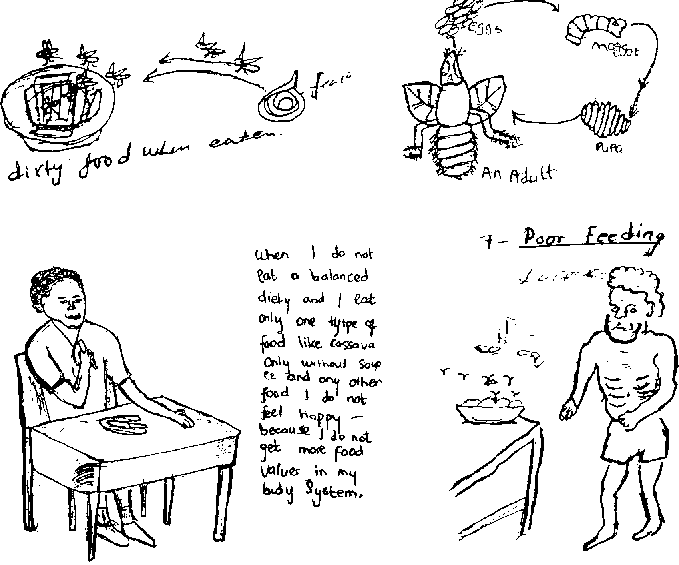 eggs
maggot
pupa
An Adult
dirty food when eaten.
7 - Poor Feeding
When I do not
Eat a balanced
diety and I Eat
only one tytpe of
food like cassava
Only without soup
or and any other
food I do not
feel Happy -
because I do not
get more food
Values in my
body System.